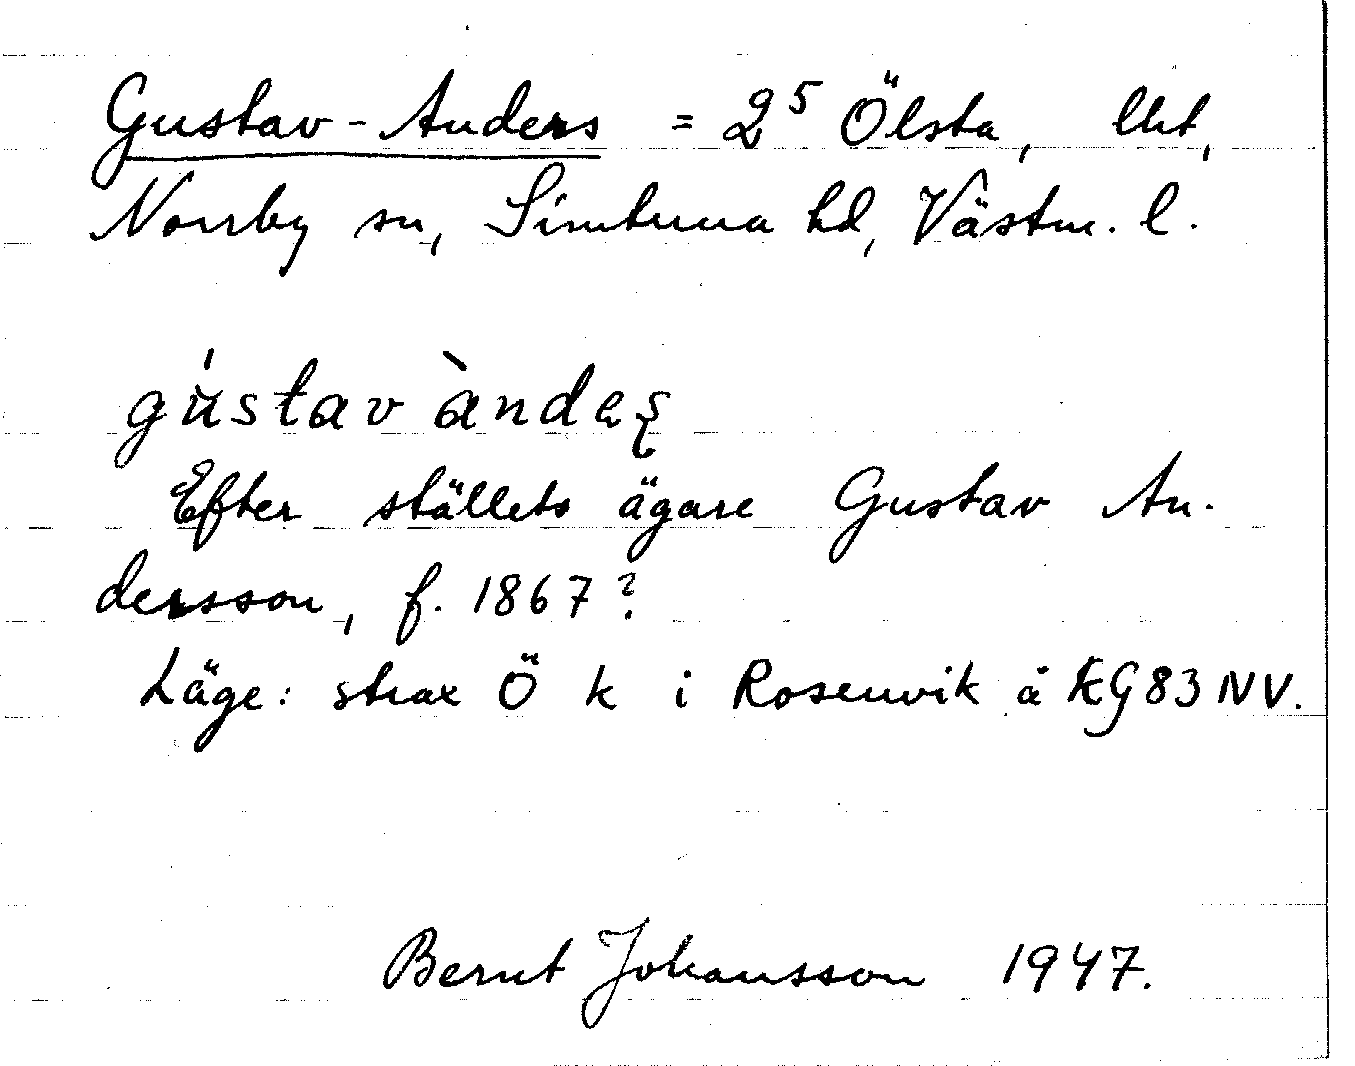 Gustav-Anders = 2⁵ Ölsta, lht,
Norrby sn, Simtuna hd, Västm. l.
gùstav àndeʂ
Efter ställets ägare Gustav An-
dersson, f. 1867?
Läge: strax Ö k i Rosenvik å KG83NV.
Bernt Johansson 1947.